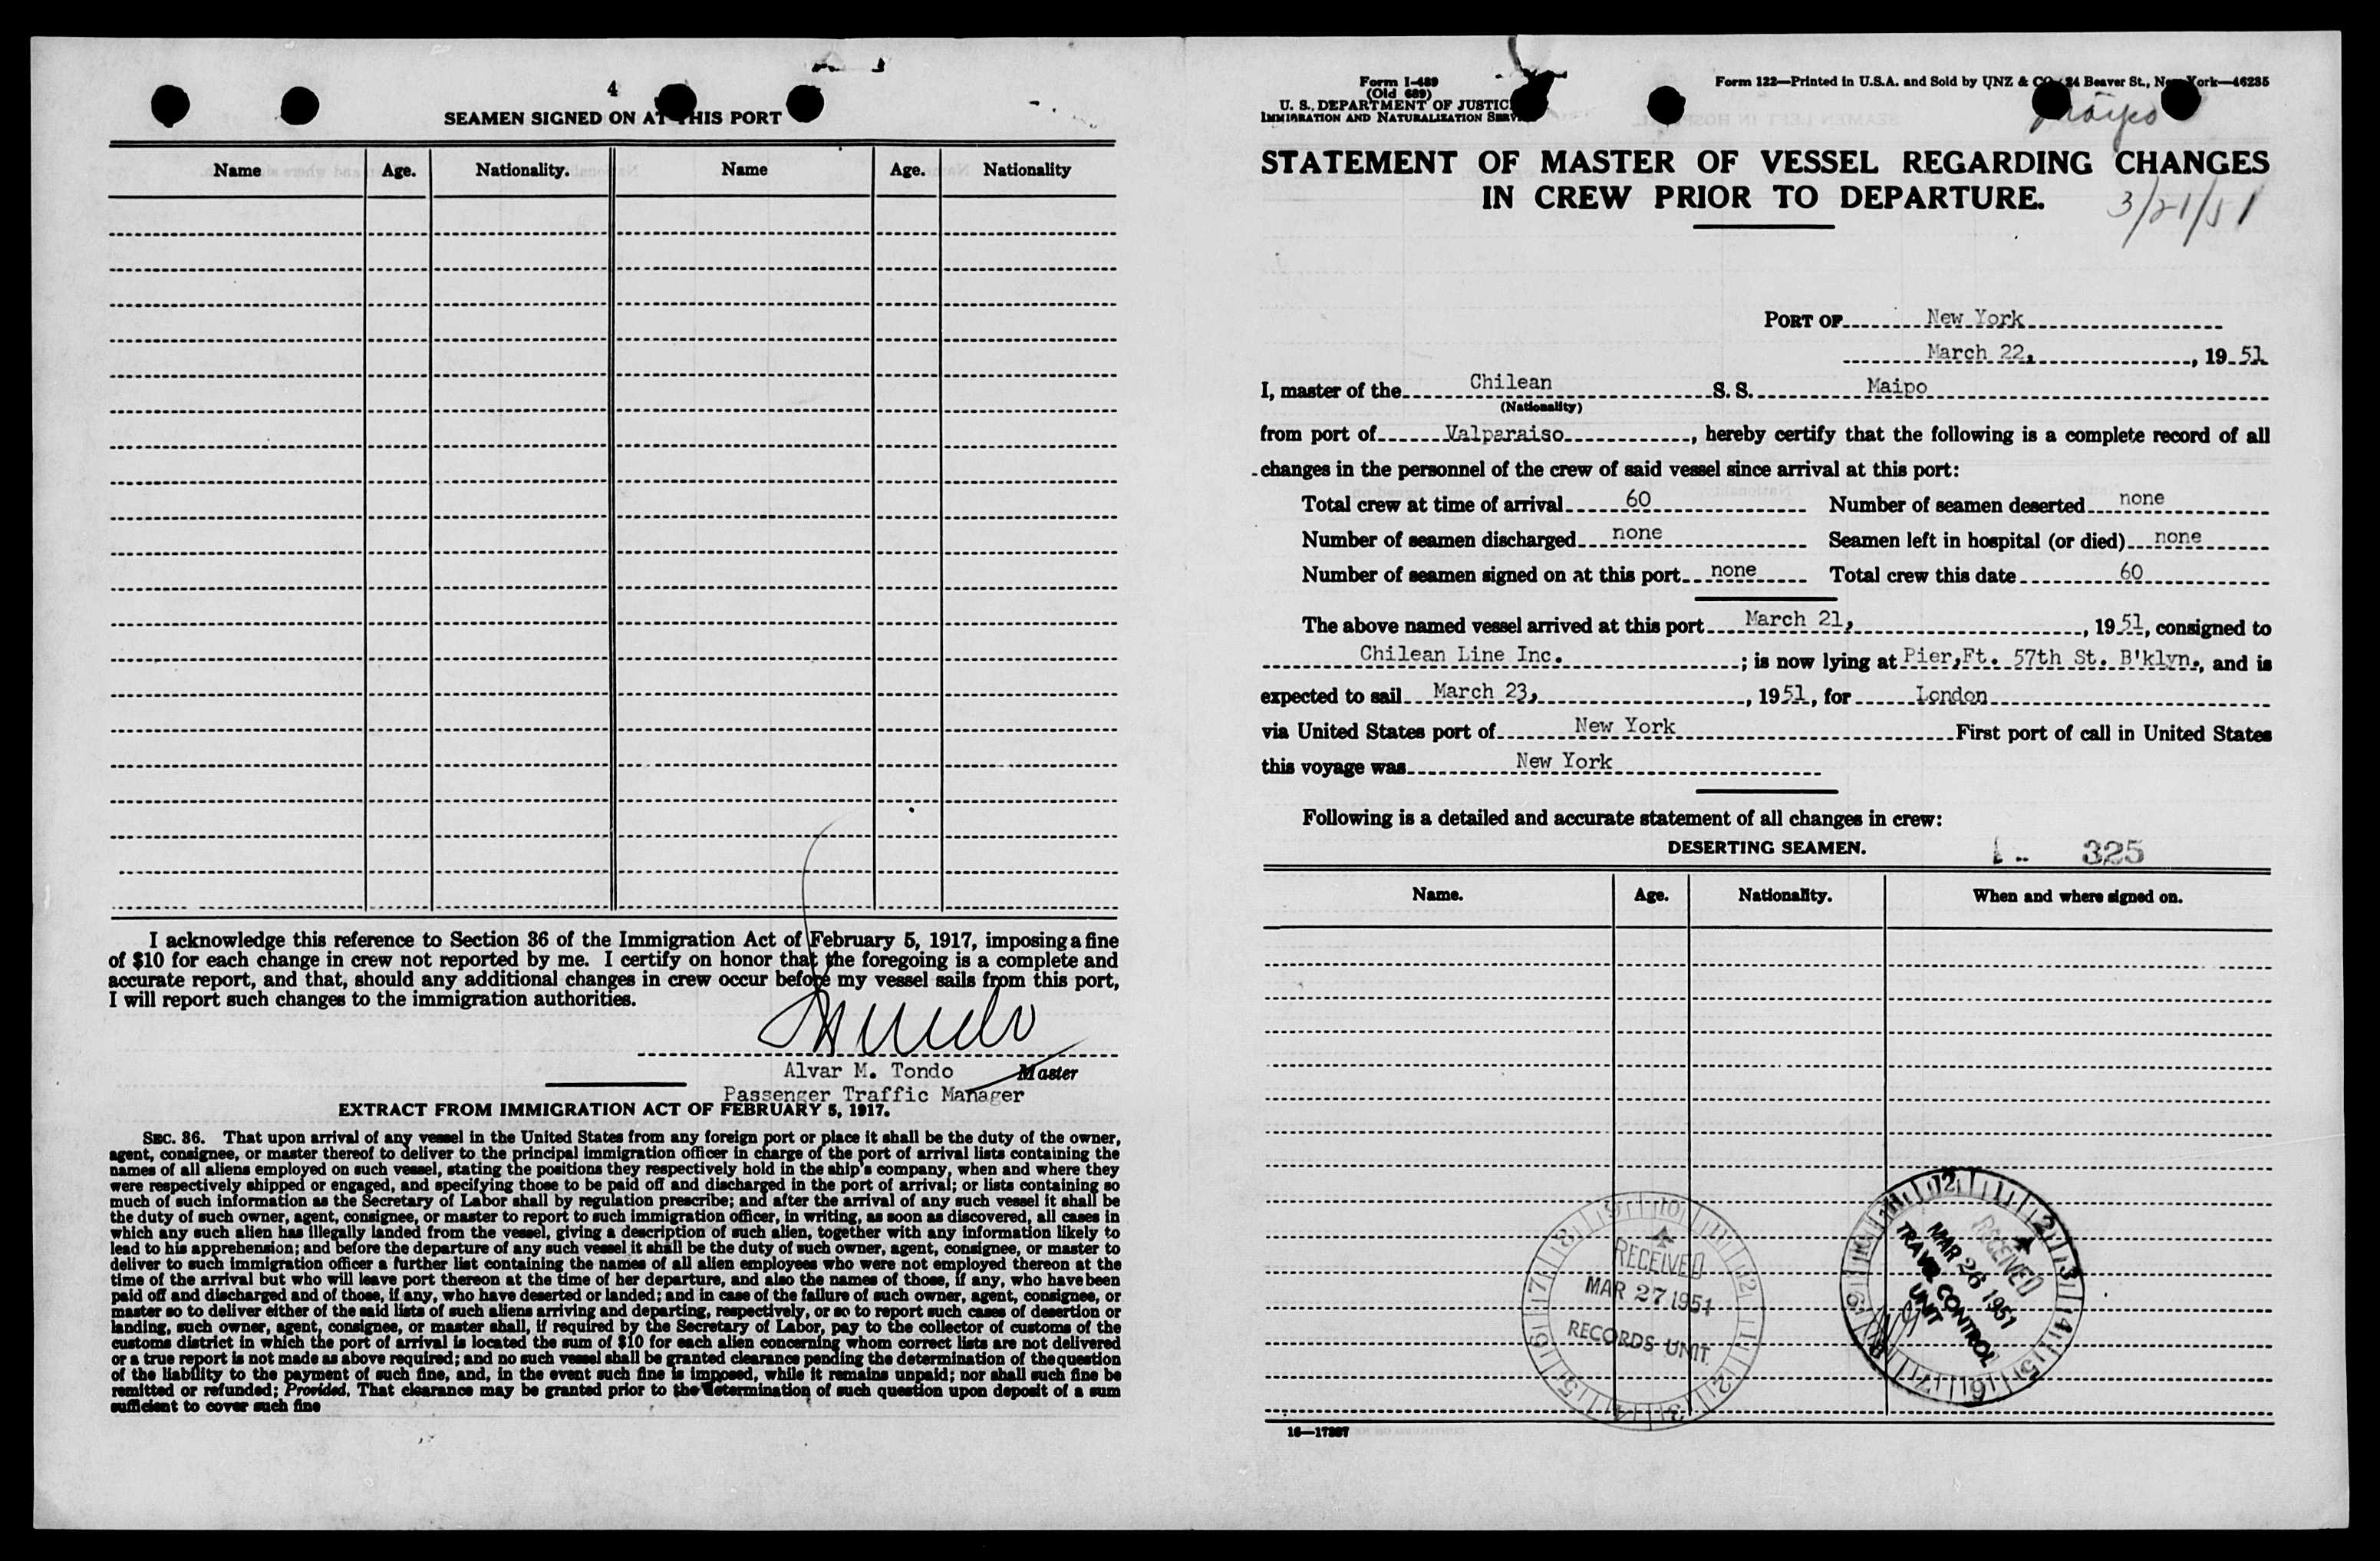 4
SEAMEN SIGNED ON AT THIS PORT
Name Age. Nationality. Name Age. Nationality
I acknowledge this reference to Section 36 of the Immigration Act of February 5, 1917, imposing a fine
of $10 for each change in crew not reported by me. I certify on honor that the foregoing is a complete and
accurate report, and that, should any additional changes in crew occur before my vessel sails from this port,
I will report such changes to the immigration authorities.
Alvar M. Tondo Master
Passenger Traffic Manager
EXTRACT FROM IMMIGRATION ACT OF FEBRUARY 5, 1917.
SEC. 36. That upon arrival of any vessel in the United States from any foreign port or place it shall be the duty of the owner,
agent, consignee, or master thereof to deliver to the principal immigration officer in charge of the port of arrival lists containing the
names of all aliens employed on such vessel, stating the positions they respectively hold in the ship's company, when and where they
were respectively shipped or engaged, and specifying those to be paid off and discharged in the port of arrival; or lists containing so
much of such information as the Secretary of Labor shall by regulation prescribe; and after the arrival of any such vessel it shall be
the duty of such owner, agent, consignee, or master to report to such immigration officer, in writing, as soon as discovered, all cases in
which any such alien has illegally landed from the vessel, giving a description of such alien, together with any information likely to
lead to his apprehension; and before the departure of any such vessel it shall be the duty of such owner, agent, consignee, or master to
deliver to such immigration officer a further list containing the names of all alien employees who were not employed thereon at the
time of the arrival but who will leave port thereon at the time of her departure, and also the names of those, if any, who have been
paid off and discharged and of those, if any, who have deserted or landed; and in case of the failure of such owner, agent, consignee, or
master so to deliver either of the said lists of such aliens arriving and departing, respectively, or so to report such cases of desertion or
landing, such owner, agent, consignee, or master shall, if required by the Secretary of Labor, pay to the collector of customs of the
customs district in which the port of arrival is located the sum of $10 for each alien concerning whom correct lists are not delivered
or a true report is not made as above required; and no such vessel shall be granted clearance pending the determination of the question
of the liability to the payment of such fine, and, in the event such fine is imposed, while it remains unpaid; nor shall such fine be
remitted or refunded; Provided, That clearance may be granted prior to the determination of such question upon deposit of a sum
sufficient to cover such fine
Form I-489
(Old 689)
U. S. DEPARTMENT OF JUSTICE
IMMIGRATION AND NATURALIZATION SERV
Form 122—Printed in U.S.A. and Sold by UNZ & CO., 24 Beaver St., New York—46285
Maipo
STATEMENT OF MASTER OF VESSEL REGARDING CHANGES
IN CREW PRIOR TO DEPARTURE.
3/21/51
PORT OF New York
March 22, , 19 51
I, master of the Chilean S. S. Maipo
(Nationality)
from port of Valparaiso , hereby certify that the following is a complete record of all
changes in the personnel of the crew of said vessel since arrival at this port:
Total crew at time of arrival 60 Number of seamen deserted none
Number of seamen discharged none Seamen left in hospital (or died) none
Number of seamen signed on at this port none Total crew this date 60
The above named vessel arrived at this port March 21, , 19 51, consigned to
Chilean Line Inc. ; is now lying at Pier,Ft. 57th St. B'klyn., and is
expected to sail March 23, , 19 51, for London
via United States port of New York First port of call in United States
this voyage was New York
Following is a detailed and accurate statement of all changes in crew:
DESERTING SEAMEN.
325
Name. Age. Nationality. When and where signed on.
RECEIVED
MAR 27 1951
RECORDS UNIT.
RECEIVED
MAR 26 1951
TRAVEL CONTROL
UNIT
16—17397